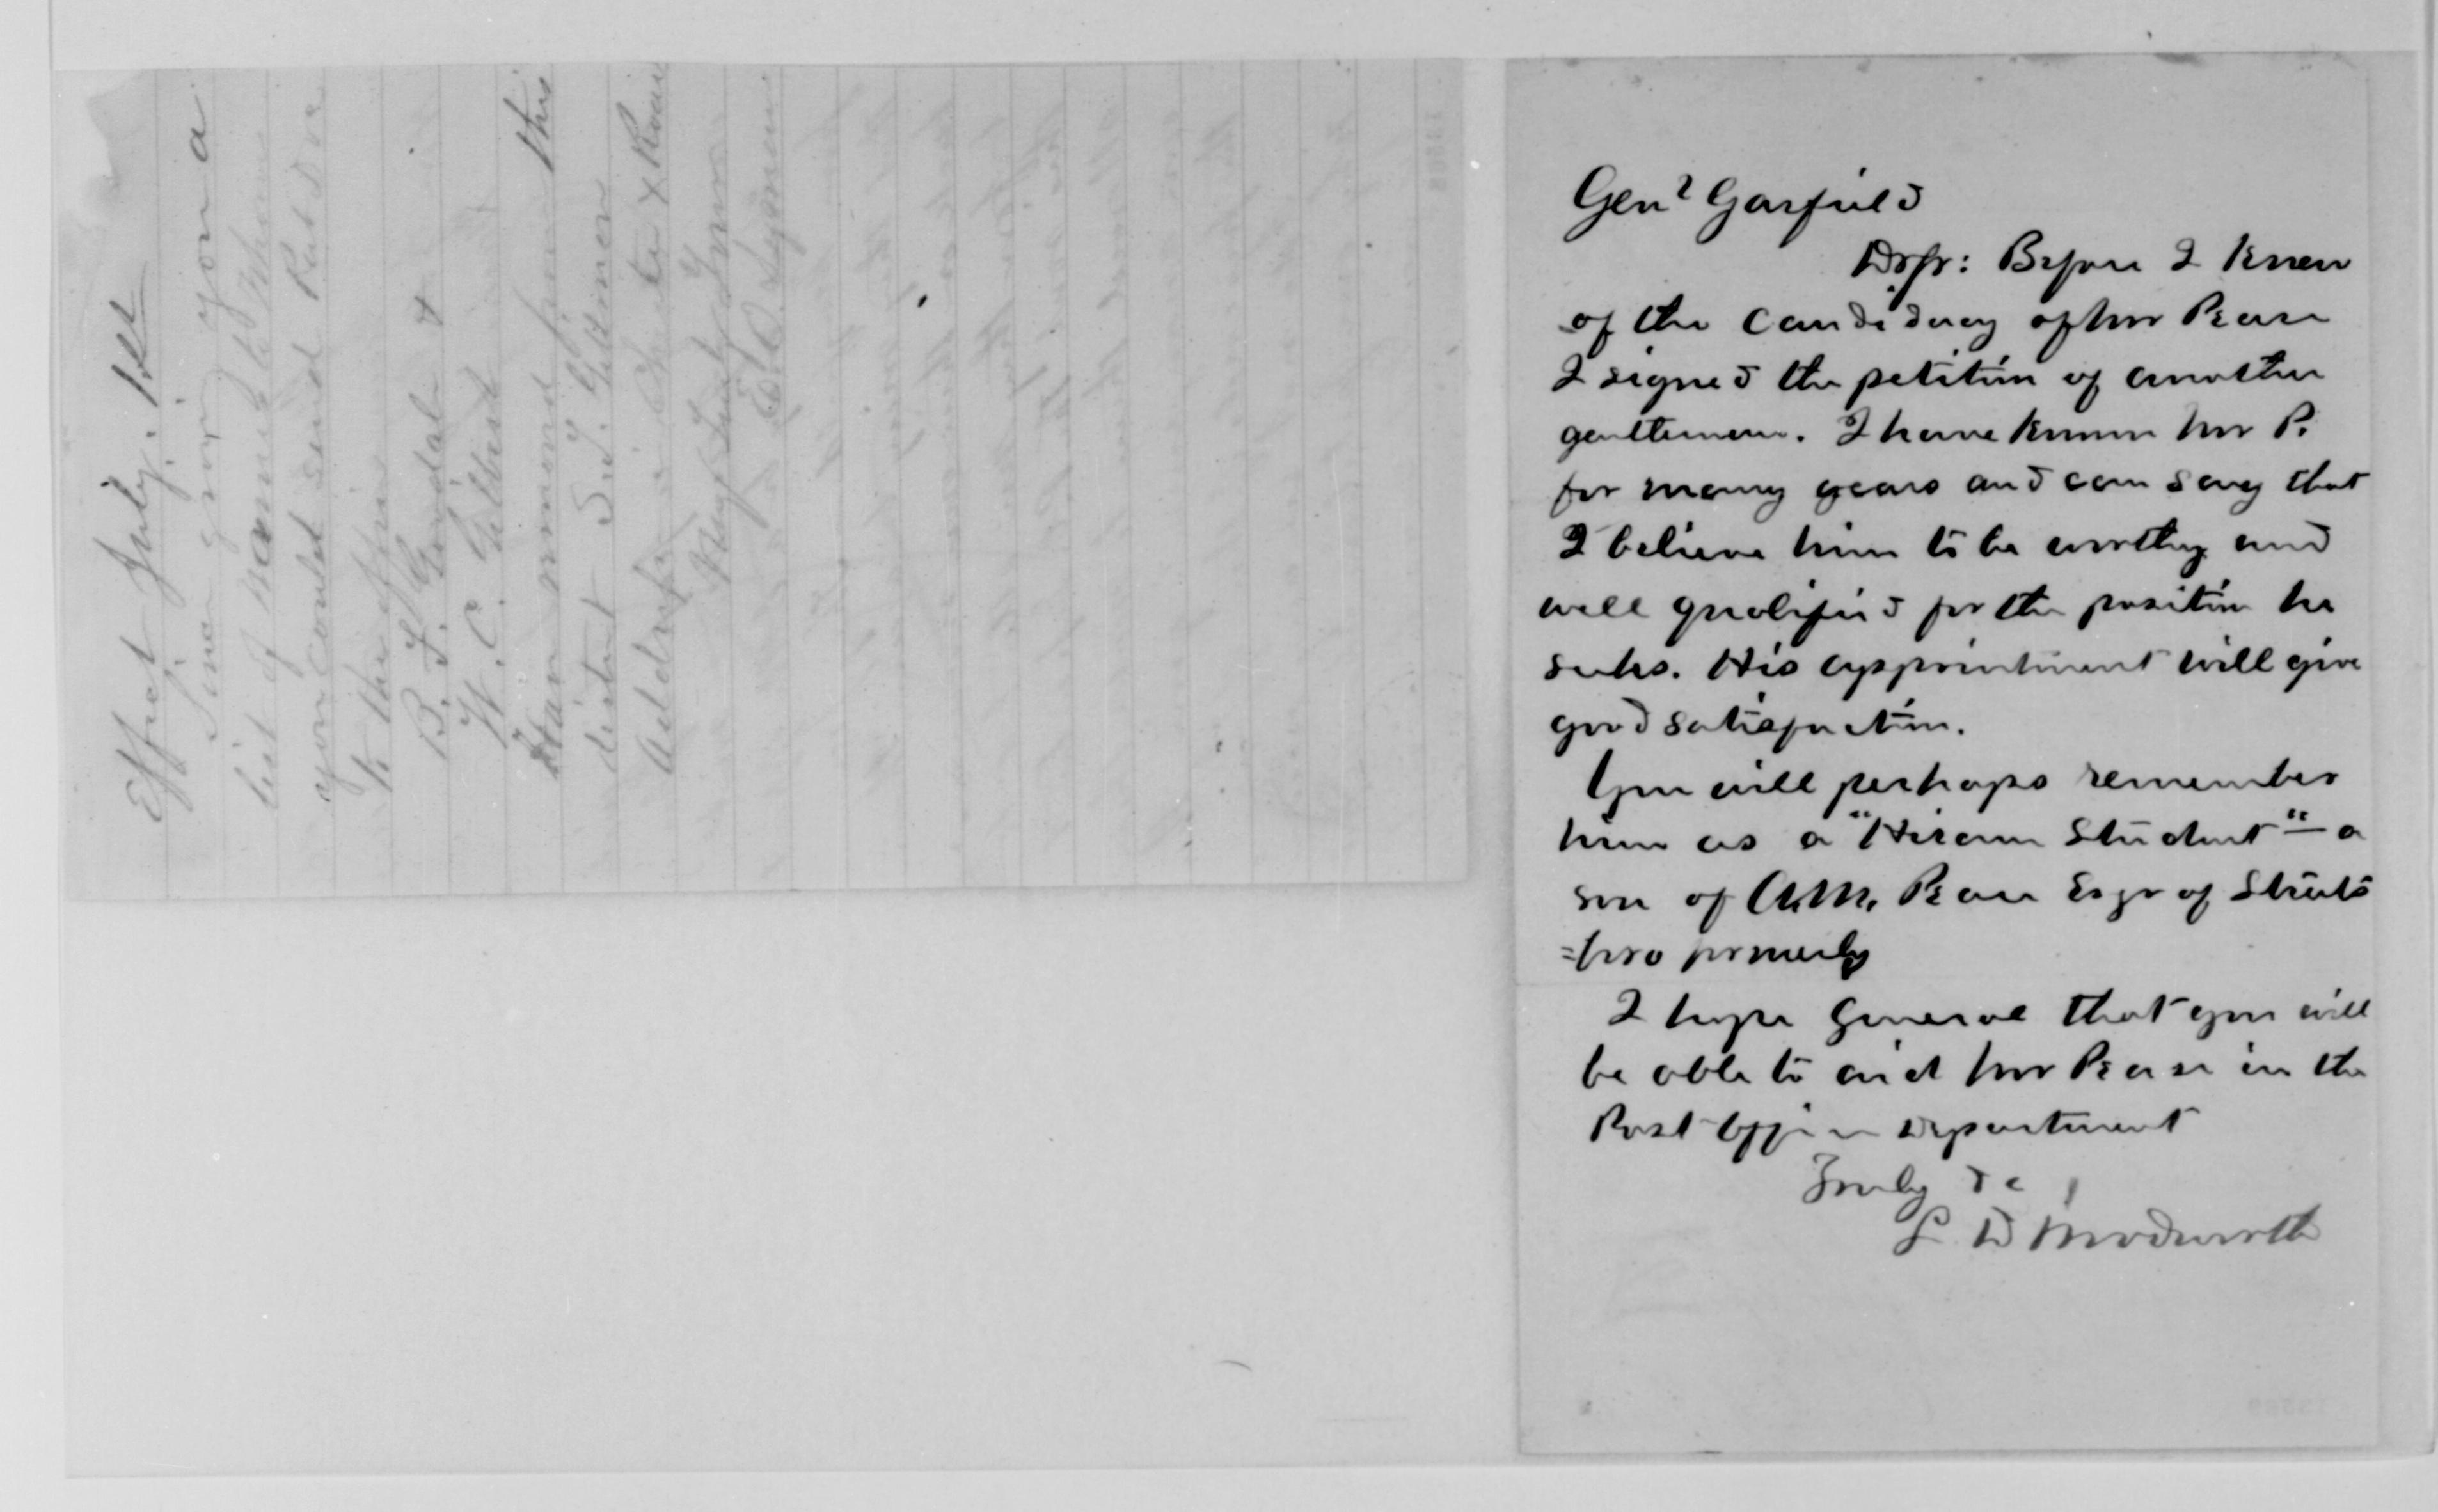 Effect July. 1st
Since giving you a
list of names to whom
you could send Pat D va
to the office
B. F. &
W. C. Gilbert
Have removed from this
list S. J. Gilmer
Address
May
E. D. Lyman
Genl Garfield
Dr Sir: Before I knew
of the candidacy of Mr Pease
I signed the petition of another
gentleman. I have known Mr P.
for many years and can say that
I believe him to be worthy and
well qualified for the position he
seeks. His appointment will give
good satisfaction.
You will perhaps remember
him as a "Hiram Student" — a
son of A.M. Pease Esqr of Streets
=boro formerly
I hope General that you will
be able to aid Mr Pease in the
Post Office Department
Truly &c
L D Woodworth